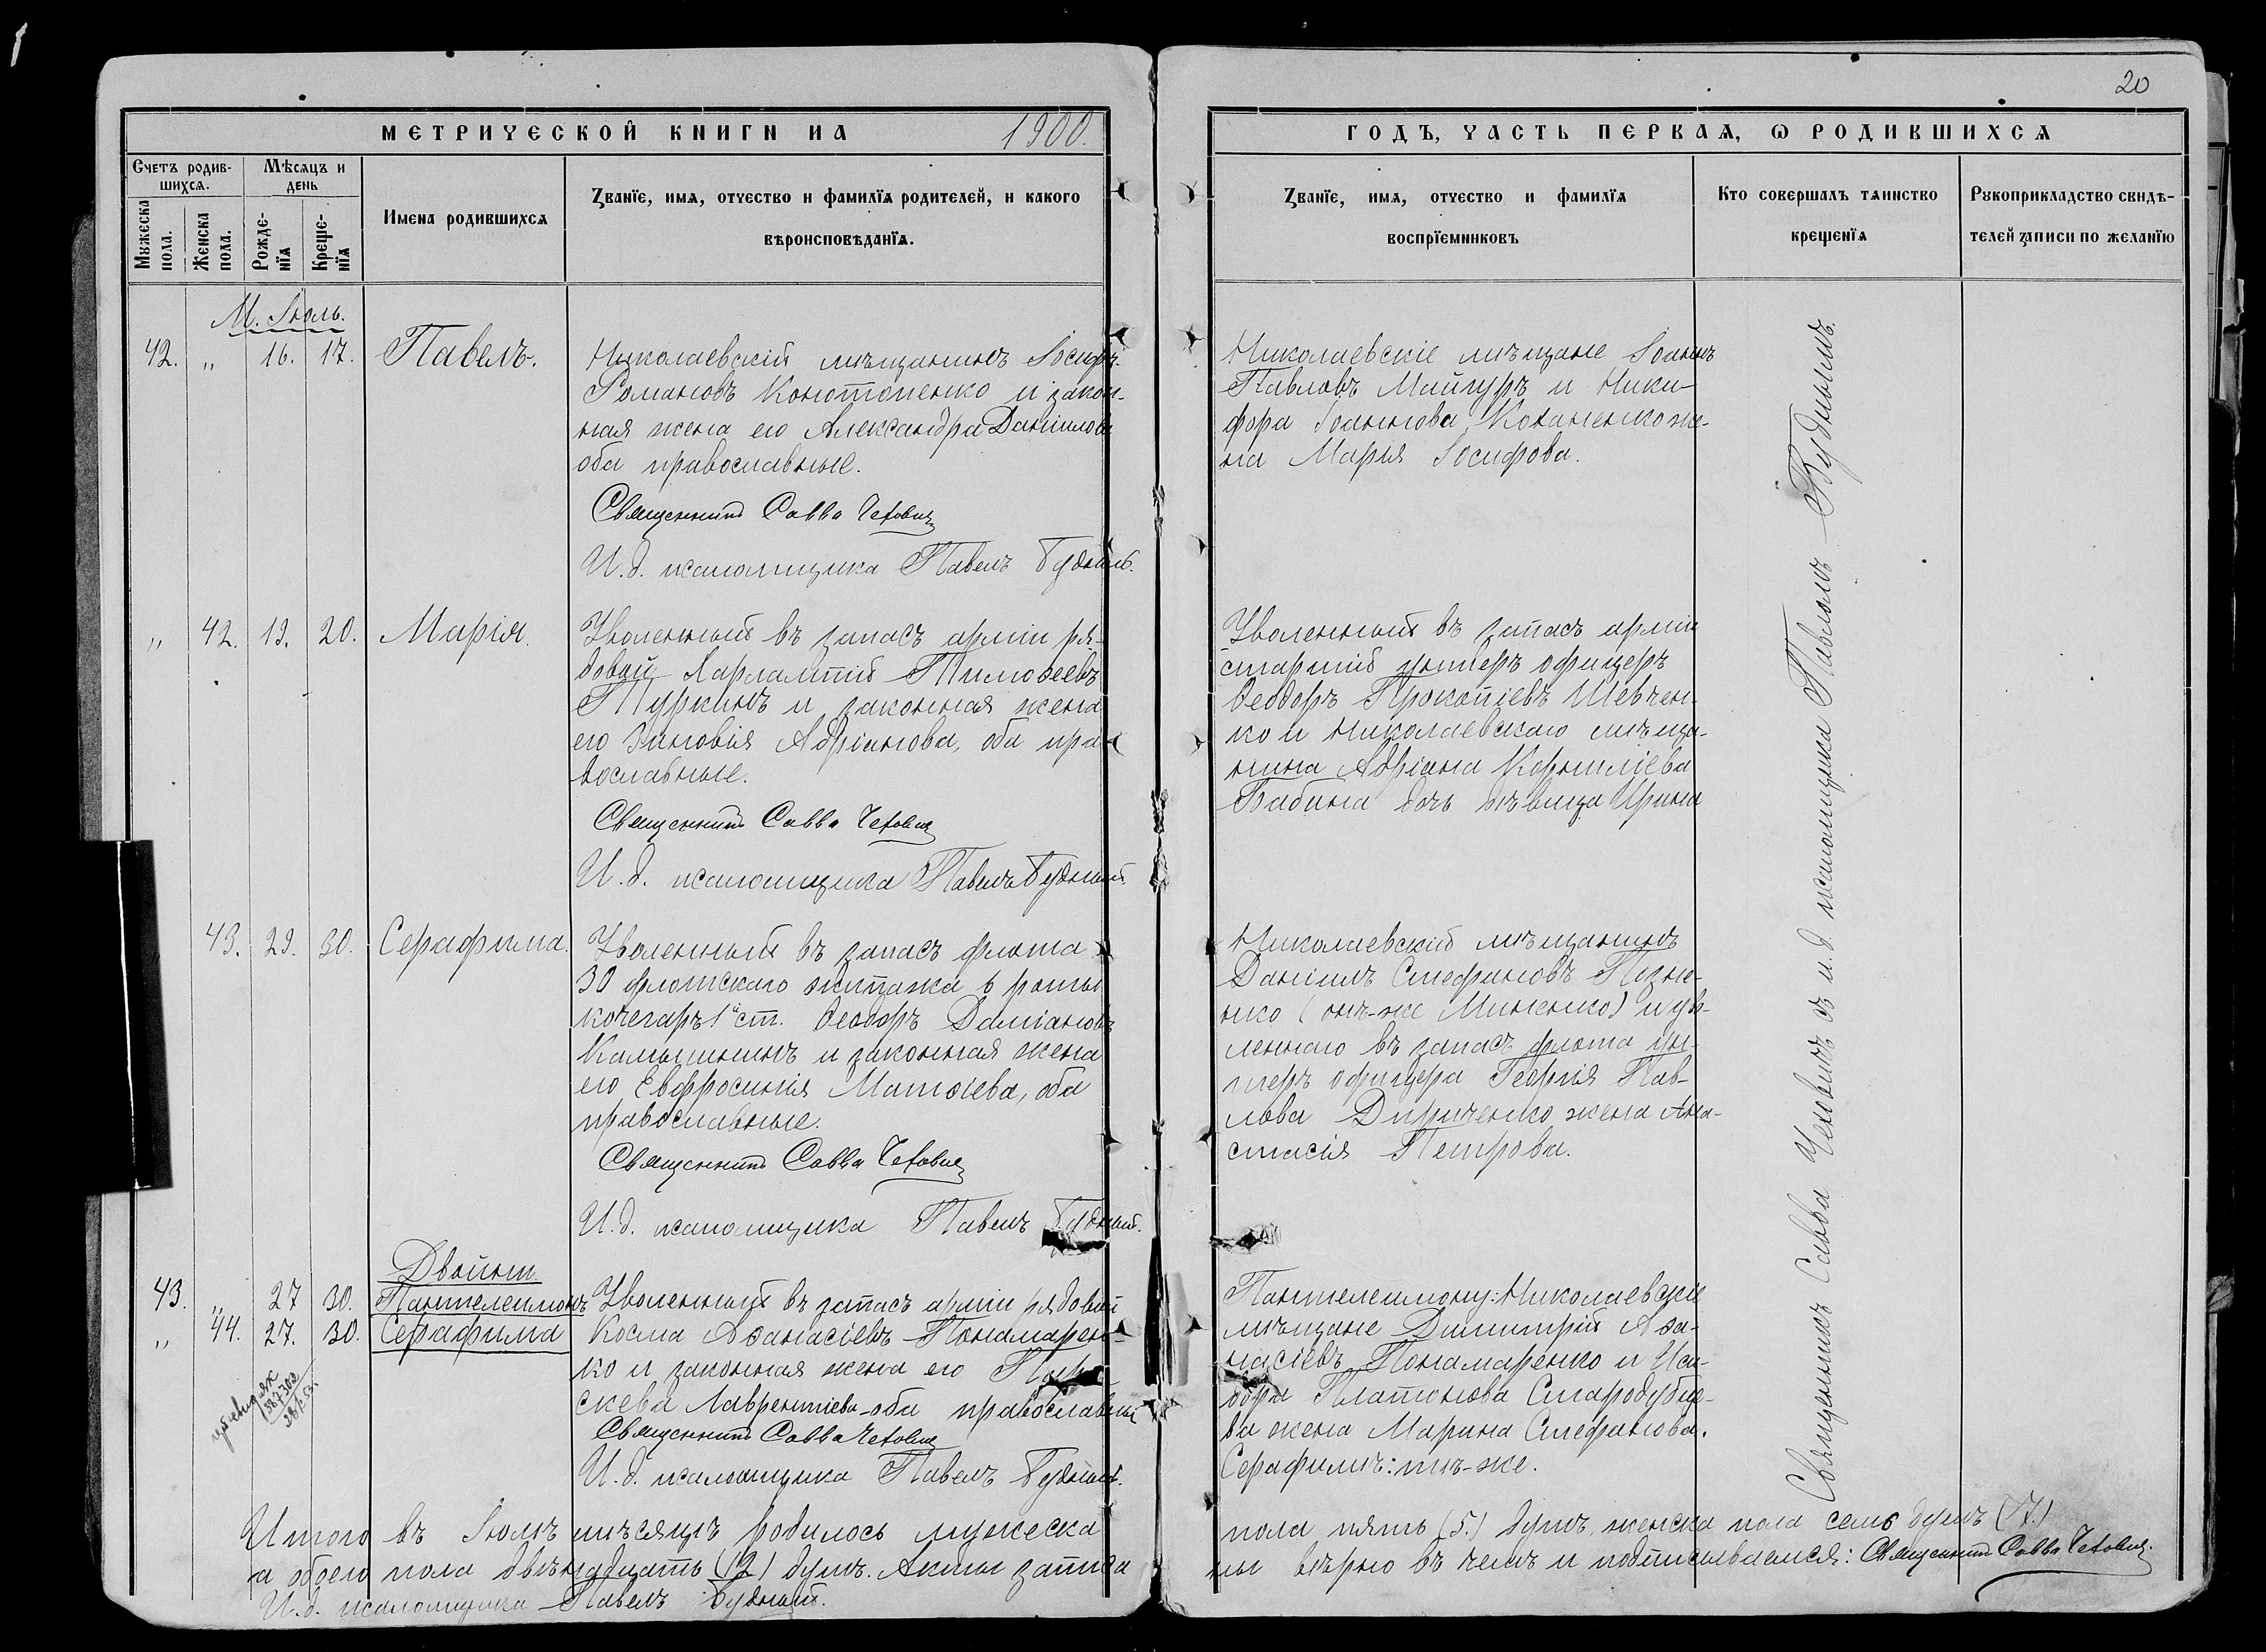 20
МЕТРИЧЕСКОЙ КНИГИ НА 1900.
ГОДЪ, ЧАСТЬ ПЕРВАЯ, Ѡ РОДИВШИХСЯ
Счетъ родив-
шихся.
Мужеска
пола.
Женска
пола.
Мѣсяцъ и
день
Рожде-
нїя
Креще-
нїя
Имена родившихся
Званїе, имя, отчество и фамилїя родителей, и какого
вѣроисповѣданїя.
Званїе, имя, отчество и фамилїя
воспрїемниковъ
Кто совершалъ таинство
крещенїя
Рукоприкладство свидѣ-
телей записи по желанїю
М. Іюль.
42. „ 16. 17. Павелъ.
Николаевскій мѣщанинъ Іосифъ
Романовъ Конотопенко и закон-
ная жена его Александра Даніилова
оба православные.
Священникъ Савва Чехович
И. д. псаломщика Павелъ Будный.
Николаевскіе мѣщане Іоаннъ
Павловъ Майгуръ и Ники-
фора Іоаннова Коханенко же-
на Марія Іосифова.
„ 42. 19. 20. Марія.
Уволенный въ запасъ арміи ря-
довой Харлампій Тимоѳеевъ
Туркинъ и законная жена
его Зиновія Адріанова, оба пра-
вославные.
Священникъ Савва Чехович
И. д. псаломщика Павелъ Будный.
Уволенный въ запасъ арміи
старшій унтеръ офицеръ
Ѳеодоръ Прокопіевъ Шевчен-
ко и Николаевскаго мѣща-
нина Адріана Корниліева
Бабина дочь дѣвица Ирина
43. 29. 30. Серафима.
Уволенный въ запасъ флота
30 флотскаго экипажа 6 роты
кочегаръ 1й ст. Ѳеодоръ Даміановъ
Камышнинъ и законная жена
его Евфросинія Матѳіева, оба
православные.
Священникъ Савва Чехович
И. д. псаломщика Павелъ Будный.
Николаевскій мѣщанинъ
Даніилъ Стефановъ
(онъ-же Миненко) и уво-
леннаго въ запасъ флота ун-
теръ офицера Георгія Пав-
лова Дириченко жена Ана-
стасія Петрова.
Двойни
43. „ 27 30. Пантелеимонъ
„ 44. 27. 30. Серафима
Уволенный въ запасъ арміи рядовой
Косма Аѳанасіевъ Понамарен-
ко и законная жена его Пара-
скева Лаврентіева оба православные
Священникъ Савва Чехович
И. д. псаломщика Павелъ Будный.
Пантелеимону: Николаевскіе
мѣщане Димитрій Аѳа-
насіевъ Понамаренко и Иси-
дора Платонова Стародубце-
ва жена Марина Стефанова.
Серафимѣ: тѣ-же.
Священникъ Савва Чеховичъ съ и. д. псаломщика Павломъ Буднымъ.
Итого въ Іюлѣ мѣсяцѣ родилось мужеска пола пять (5.) душъ, женска пола семь душъ (7.)
а обоего пола двѣнадцать (12) душъ. Акты записа ны вѣрно въ чемъ и подписываемся: Священникъ Савва Чехович.
И. д. псаломщика Павелъ Будный.